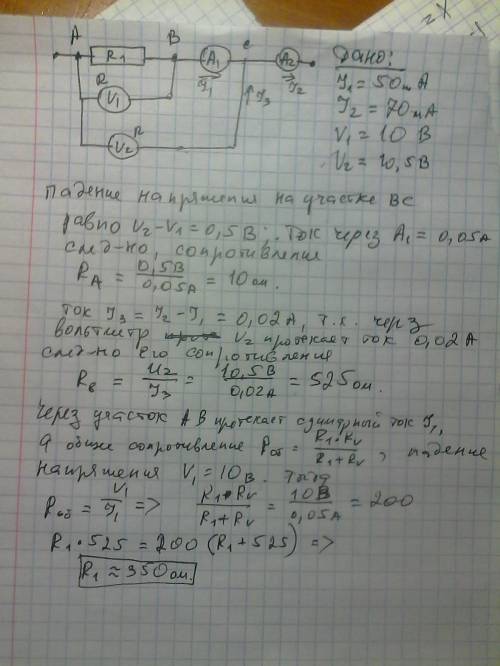 A R1 B A1 c A2
R V1 I1 I3 I2
R V2
Дано:
I1 = 50 mA
I2 = 70 mA
V1 = 10 В
V2 = 10,5 В
падение напряжения на участке BC
равно V2 - V1 = 0,5 В. Ток через A1 = 0,05 А
след-но, сопротивление
RA = 0,5В / 0,05А = 10 ом.
ток I3 = I2 - I1 = 0,02 А, т.к. через
вольтметр V2 протекает ток 0,02 А
след-но его сопротивления
Rв = U2 / I3 = 10,5В / 0,02А = 525 ом.
через участок AB протекает суммарный ток I1,
а общее сопротивление Rоб = R1 · RV / R1 + RV, падение
напряжения V1 = 10 В. тогда
Rоб = V1 / I1 => R1 · RV / R1 + RV = 10В / 0,05А = 200
R1 · 525 = 200 (R1 + 525) =>
R1 ≈ 350 ом.